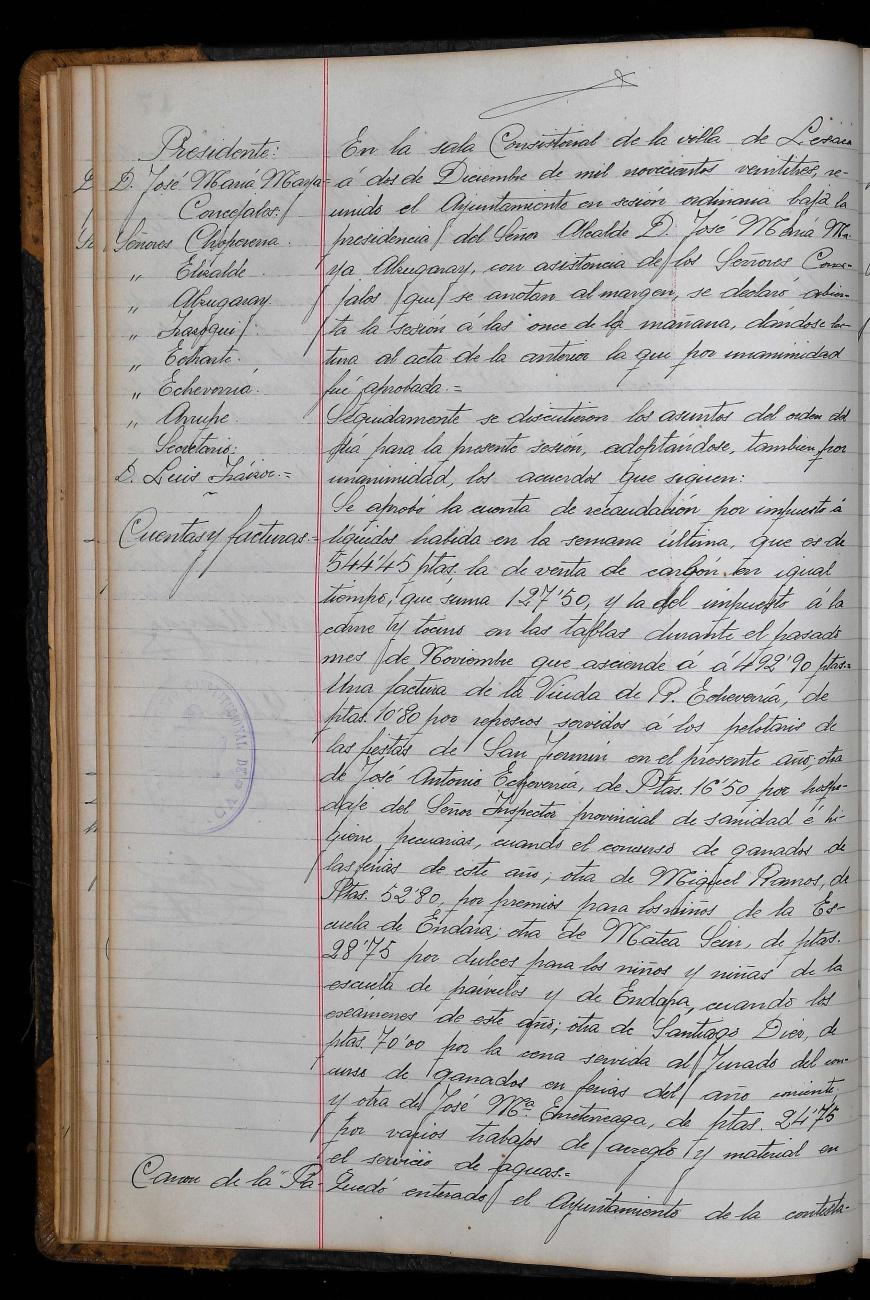 Presidente:
D. José María Marya=
Concejales:
Señores Choperena.
„ Elizalde
„ Alzugaray.
„ Irazoqui.
„ Echarte.
„ Echeverría.
„ Arrupe.
Secretario:
D. Luis
Cuentas y facturas.=
Canon de la Pa-
En la sala Consistorial de la villa de Lesaca
á dos de Diciembre de mil novecientos veintitres, re-
unido el Ayuntamiento en sesión ordinaria bajo la
presidencia del Señor Alcalde D. José María Ma-
rya Alzugaray, con asistencia de los Señores Conce-
jales que se anotan al margen, se declaró abier-
ta la sesión á las once de la mañana, dándose lec-
tura al acta de la anterior la que por unanimidad
fué aprobada.=
Seguidamente se discutieron los asuntos del orden del
día para la presente sesión, adoptándose, tambien por
unanimidad, los acuerdos que siguen:
Se aprobó la cuenta de recaudación por impuesto á
líquidos habida en la semana última, que es de
544'45 ptas, la de venta de carbón en igual
tiempo, que suma 127'50, y la del impuesto á la
carne y tocino en las tablas durante el pasado
mes de Noviembre que asciende á á 492'90 ptas.=
Una factura de la Viuda de P. Echeverría, de
ptas. 10'80 por refrescos servidos á los pelotaris de
las fiestas de San Fermín en el presente año; otra
de José Antonio Echeverría, de Ptas. 16'50 por hospe-
daje del Señor Inspector provincial de sanidad é hi-
giene pecuarias, cuando el concurso de ganados de
las ferias de este año; otra de Miguel Ramos, de
Ptas. 52'80, por premios para los niños de la Es-
cuela de Endara; otra de Matea Sein, de ptas.
28'75 por dulces para los niños y niñas de la
escuela de párvulos y de Endara, cuando los
exámenes de este año; otra de Santiago Diez, de
ptas. 70'00 por la cena servida al Jurado del con-
curso de ganados en ferias del año corriente,
y otra de José Mª de ptas. 24'75
por varios trabajos de arreglo y material en
el servicio de aguas.=
Quedó enterado el Ayuntamiento de la contesta-